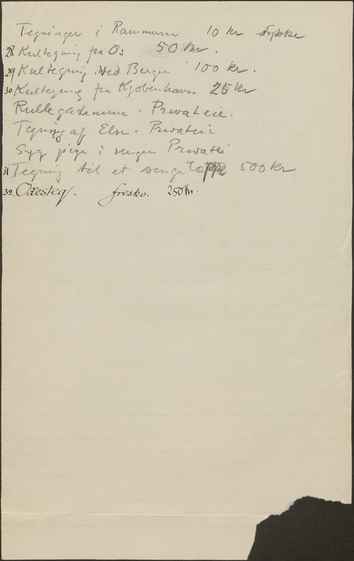 Tegninger i Rammann 10 kr stykke
28 Kultegning fra Os 50 kr.
29 Kultegning Ved Bergen 100 kr.
30 Kultegning fra Kjøbenhavn 25 kr
Privateie.
Tegning af Else. Privateie
Syg pige i sengen Privateie
31 Tegning til et sengeteppe 500 kr
32. fresko. 250 kr.